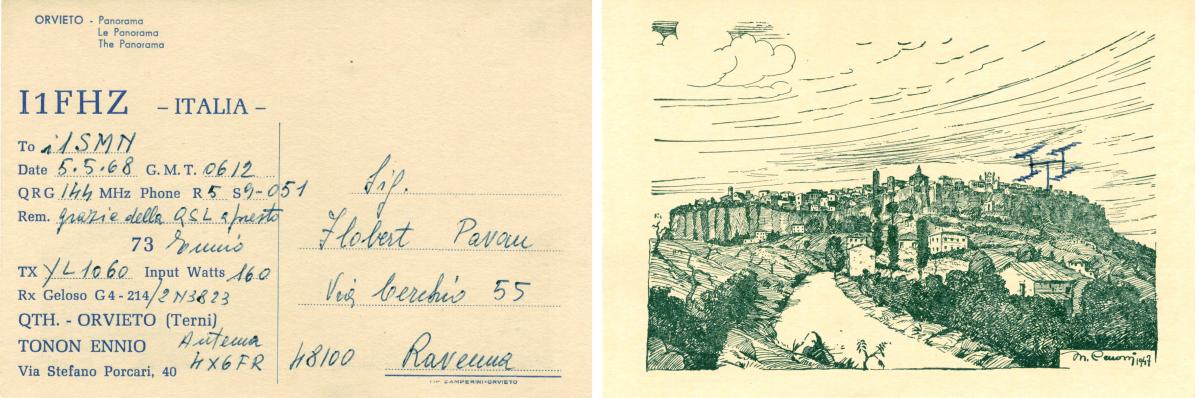 ORVIETO - Panorama
Le Panorama
The Panorama
I1FHZ - ITALIA -
To i1SMN
Date 5.5.68 G.M.T. 0612
QRG 144 MHz Phone R 5 S 9-051
Rem. grazie della QSL a presto
73 Ennio
TX YL1060 Input Watts 160
Rx Geloso G4-214/2N3823
QTH. - ORVIETO (Terni)
TONON ENNIO Antenna
Via Stefano Porcari, 40 4X6FR
Sig.
Flobert Pavan
Via Cerchio 55
48100 Ravenna
TIP. CAMPERINI-ORVIETO
1947